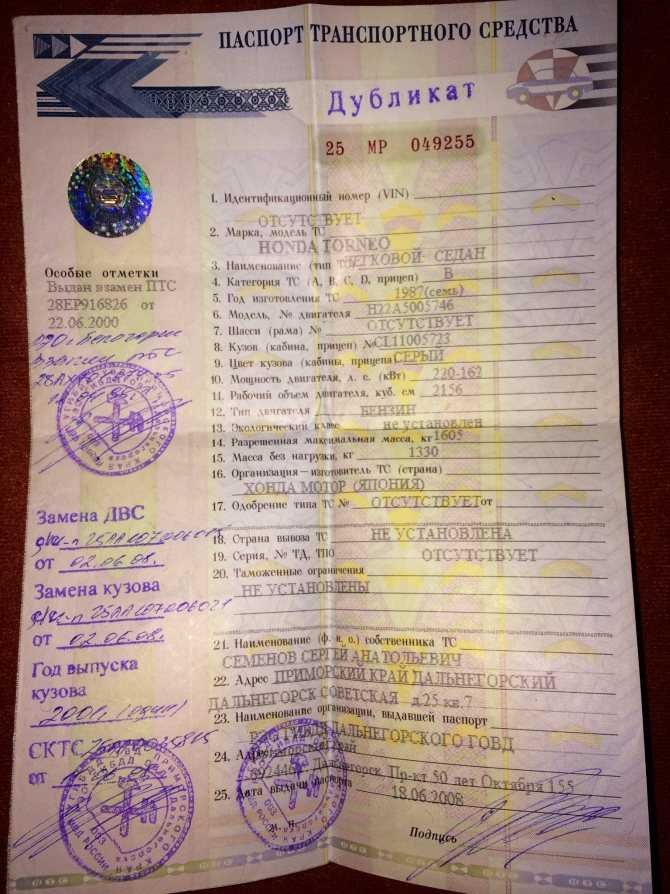 ПАСПОРТ ТРАНСПОРТНОГО СРЕДСТВА
Дубликат
25 МР 049255
1. Идентификационный номер (VIN)
ОТСУТСТВУЕТ
2. Марка, модель ТС
HONDA TORNEO
3. Наименование (тип ЛЕГКОВОЙ СЕДАН
4. Категория ТС (A, B, C, D, прицеп) B
5. Год изготовления ТС 1987(семь)
6. Модель, № двигателя H22A5005746
7. Шасси (рама) № ОТСУТСТВУЕТ
8. Кузов (кабина, прицеп) № CL11005723
9. Цвет кузова (кабины, прицепа СЕРЫЙ
10. Мощность двигателя, л. с. (кВт) 220-162
11. Рабочий объем двигателя, куб. см 2156
12. Тип двигателя БЕНЗИН
13. Экологический класс не установлен
14. Разрешенная максимальная масса, кг 1605
15. Масса без нагрузки, кг 1330
16. Организация—изготовитель ТС (страна)
ХОНДА МОТОР (ЯПОНИЯ)
17. Одобрение типа ТС № ОТСУТСТВУЕТ от
18. Страна вывоза ТС НЕ УСТАНОВЛЕНА
19. Серия, № ТД, ТПО ОТСУТСТВУЕТ
20. Таможенные ограничения
НЕ УСТАНОВЛЕНЫ
21. Наименование (ф. и. о.) собственника ТС
СЕМЕНОВ СЕРГЕЙ АНАТОЛЬЕВИЧ
22. Адрес ПРИМОРСКИЙ КРАЙ ДАЛЬНЕГОРСКИЙ
ДАЛЬНЕГОРСК СОВЕТСКАЯ д 25 кв.7
23. Наименование организации, выдавшей паспорт
ДАЛЬНЕГОРСКОГО ГОВД
24. Адрес край
Дальнегорск Пр-кт 50 лет Октября 155
25. Дата выдачи паспорта 18.06.2008
М. П.
Подпись
Особые отметки
Выдан взамен ПТС
28ЕР916826 от
22.06.2000
Замена ДВС
от 02.06.08.
Замена кузова
от 02.06.08.
Год выпуска
кузова
2001 (один)
СКТС
от